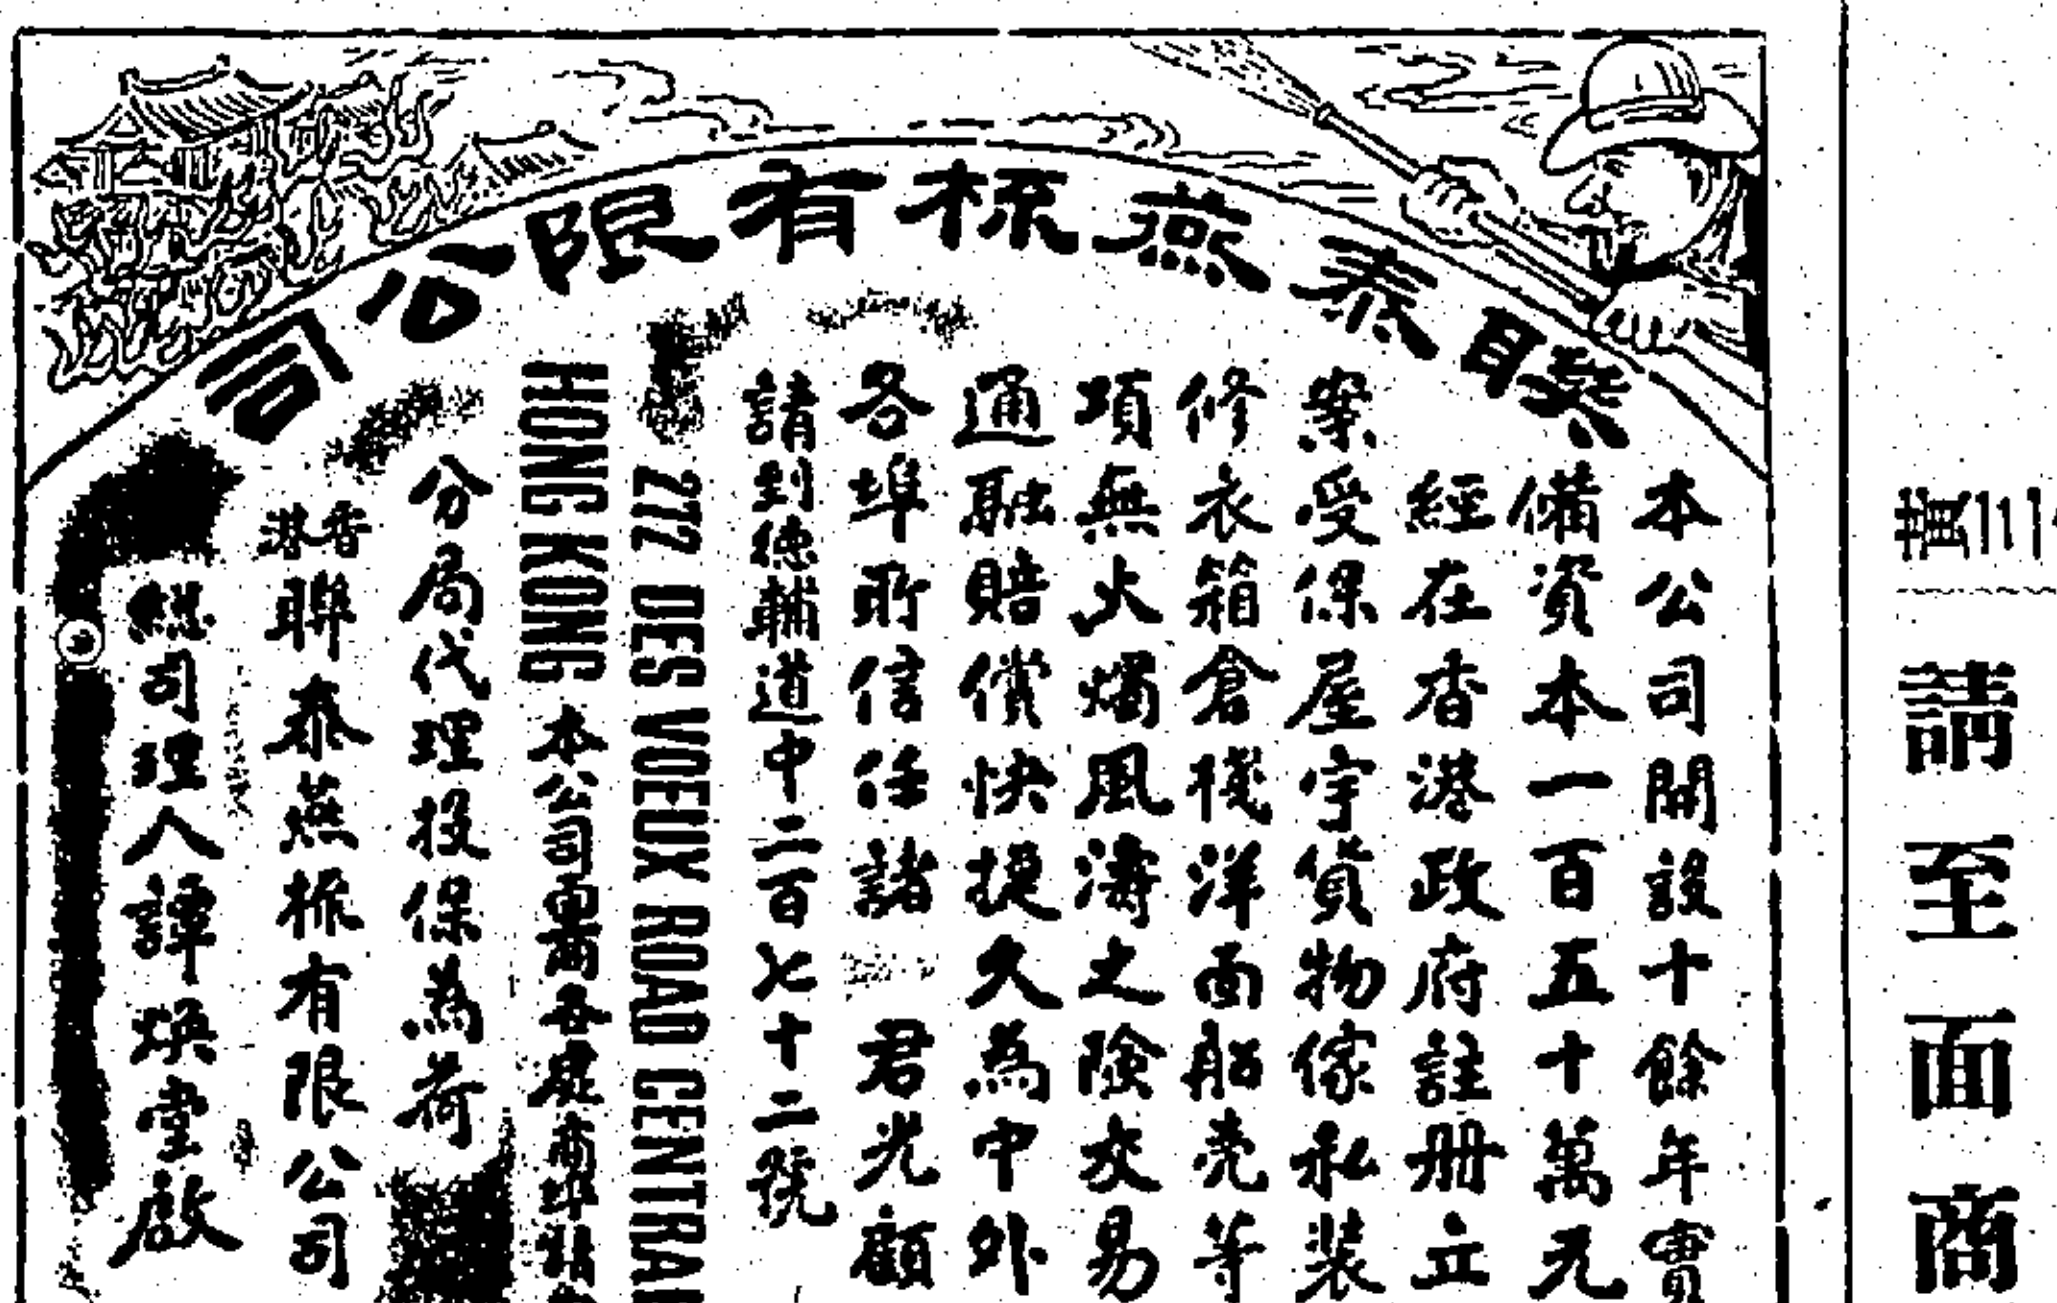 聯泰燕梳有限公司
本公司開設十餘年實
備資本一百五十萬元
經在香港政府註冊立
案受保屋宇貨物傢私裝
修衣箱倉棧洋面船壳等
項無火燭風濤之險交易
通融賠償快捷久為中外
各埠所信任諸君光顧
請到德輔道中二百七十二號
272 DES VOEUX ROAD CENTRAL
HONG KONG 本公司 各處商埠
分局代理投保為荷
香港聯泰燕梳有限公司
總司理人譚煥堂啟
請至面商